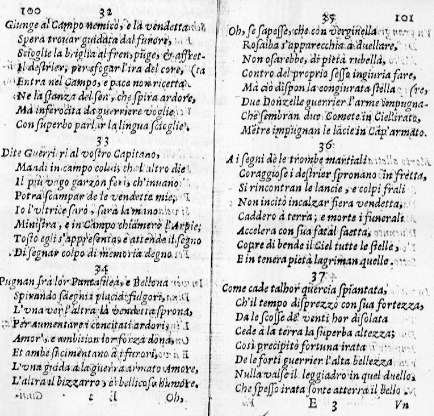 100 32
Giunge al Campo nemico, e là vendetta
Spera trouar guidata dal furore,
Scioglie la briglia al fren, pūge, & affret-
Il destrier, per sfogar l'ira del core, (ta
Entra nel Campo, e pace non ricetta
Ne la stanza del sen, che spira ardore,
Ma inferocita da guerriere voglie
Con superbo parlar la lingua scioglie.
33
Dite Guerrieri al vostro Capitano,
Mandi in campo colui, che l'altro die
Il più vago garzon ferì, ch'inuano
Potrà scampar de le vendette mie;
Io l'vltrice sarò, sarà la mano
Ministra, e in Campo chiamerò l'Arpie;
Tosto egli s'appresenta, e attende il segno
Di segnar colpo di memoria degno
34
Pugnan frà lor Pantasilea, e Bellona
Spirando sdegni i placidi fulgori,
L'vna ver l'altra la vendetta sprona,
Per aumentare i concitati ardori;
Amor', e ambision lor forza dona,
Et ambe s'accimentano à i furori,
L'vna guida à la guerra armato Amore,
L'altra il bizzarro, e bellicoso humore.
Oh,
35 101
Oh, se sapesse, che con verginella
Rosalba s'apparecchia à duellare,
Non osarebbe, di pietà rubella,
Contro del proprio sesso ingiuria fare,
Ma ciò dispon la congiurata stella
Due Donzelle guerrier l'arme empugna-
Che sembran due Comete in Ciel irato,
Mētre impugnan le làcie in Cāp'armato.
36
A i segni dè le trombe martiali
Coraggiose i destrier spronano in fretta,
Si rincontran le lancie, e colpi frali
Non incitò incalzar fiera vendetta,
Caddero à terra; e morte i funerali
Accelera con sua fatal saetta,
Copre di bende il Ciel tutte le stelle,
E in tenera pietà lagriman quelle.
37
Come cade talhor quercia spiantata,
Ch'il tempo disprezzò con sua fortezza,
Da le scosse de' venti hor disolata
Cede à la terra la superba altezza;
Così precipitò fortuna irata
De le forti guerrier l'alta bellezza
Nulla valse il leggiadro in quel duello,
Che spesso irata sorte atterra il bello
E 3 Vn